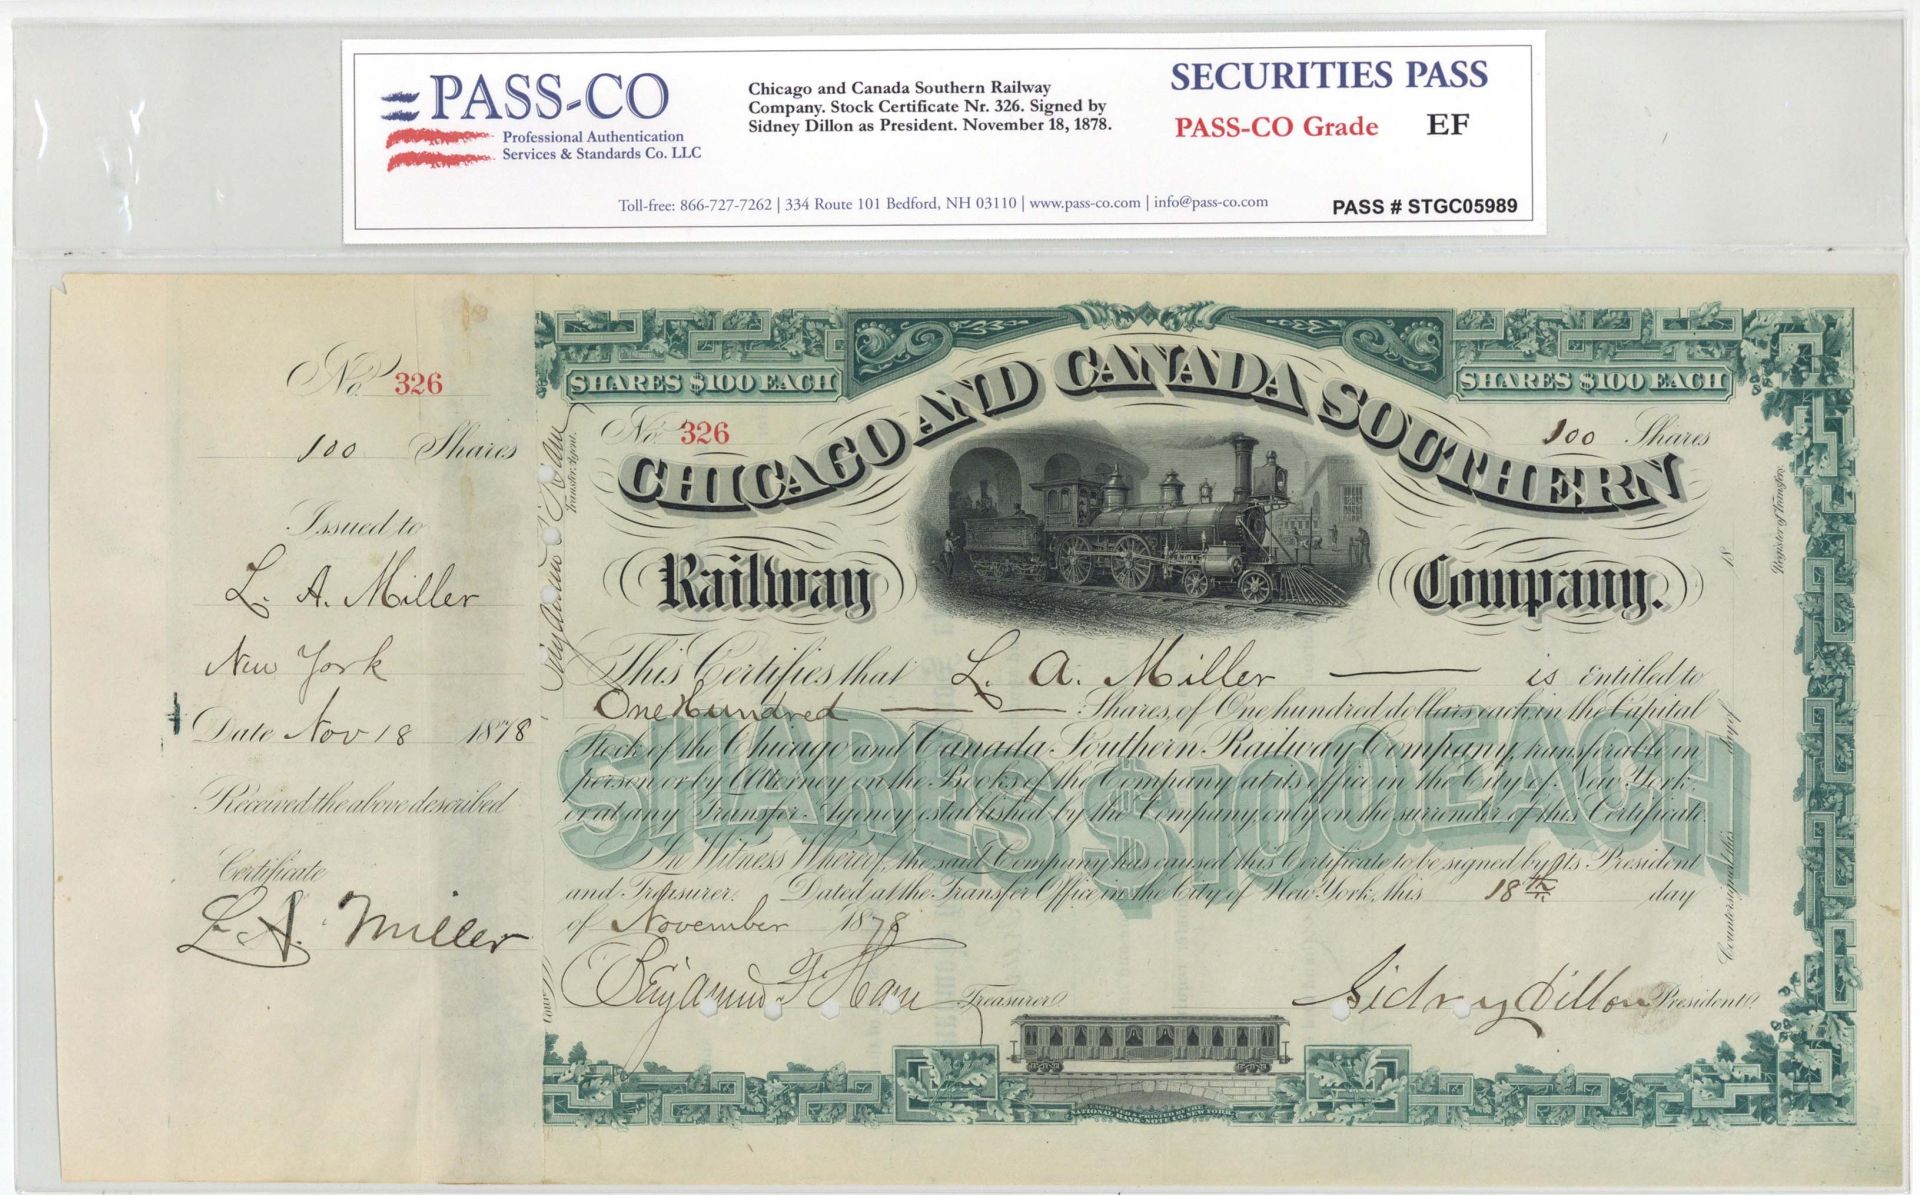 PASS-CO
Professional Authentication
Services & Standards Co. LLC
Chicago and Canada Southern Railway
Company. Stock Certificate Nr. 326. Signed by
Sidney Dillon as President. November 18, 1878.
SECURITIES PASS
PASS-CO Grade EF
Toll-free: 866-727-7262 | 334 Route 101 Bedford, NH 03110 | www.pass-co.com | info@pass-co.com
PASS # STGC05989
No. 326
100 Shares
Issued to
L. A. Miller
New York
Date Nov 18 1878
Received the above described
Certificate
L. A. Miller
Transfer Agent.
SHARES $100 EACH
SHARES $100 EACH
No. 326
100 Shares
CHICAGO AND CANADA SOUTHERN
Railway Company.
This Certifies that L. A. Miller is entitled to
One Hundred Shares, of One hundred dollars each, in the Capital
Stock of the Chicago and Canada Southern Railway Company, transferable in
person or by Attorney on the Books of the Company at its office in the City of New York,
or at any Transfer Agency established by the Company, only on the surrender of this Certificate.
In Witness Whereof, the said Company has caused this Certificate to be signed by its President
and Treasurer. Dated at the Transfer Office in the City of New York, this 18th day
of November 1878
SHARES $100. EACH
Benjamin F Ham Treasurer.
Sidney Dillon President.
Countersigned this day of 18
Register of Transfers.
ENGRAVED & PRINTED BY THE
NATIONAL BANK-NOTE CO. NEW YORK.